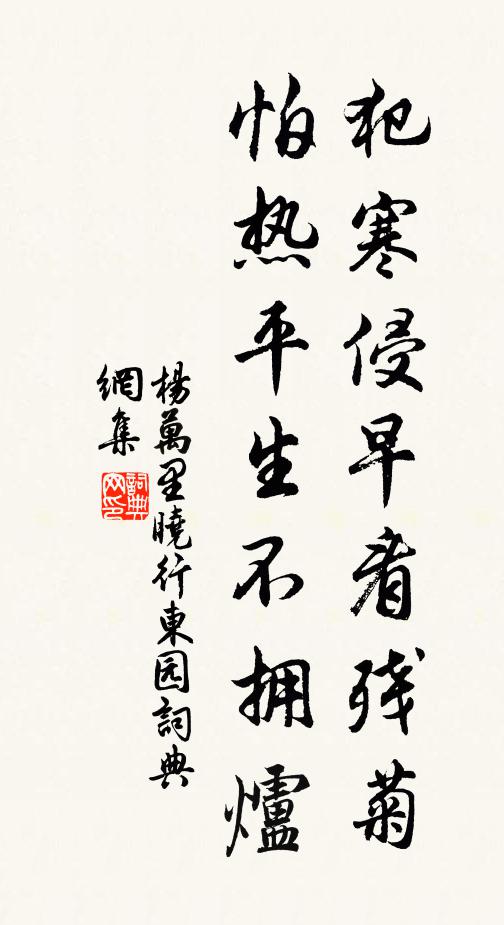 犯寒侵早看残菊
怕热平生不拥爐
楊萬里曉行東园詞典
網集
詞典
网印